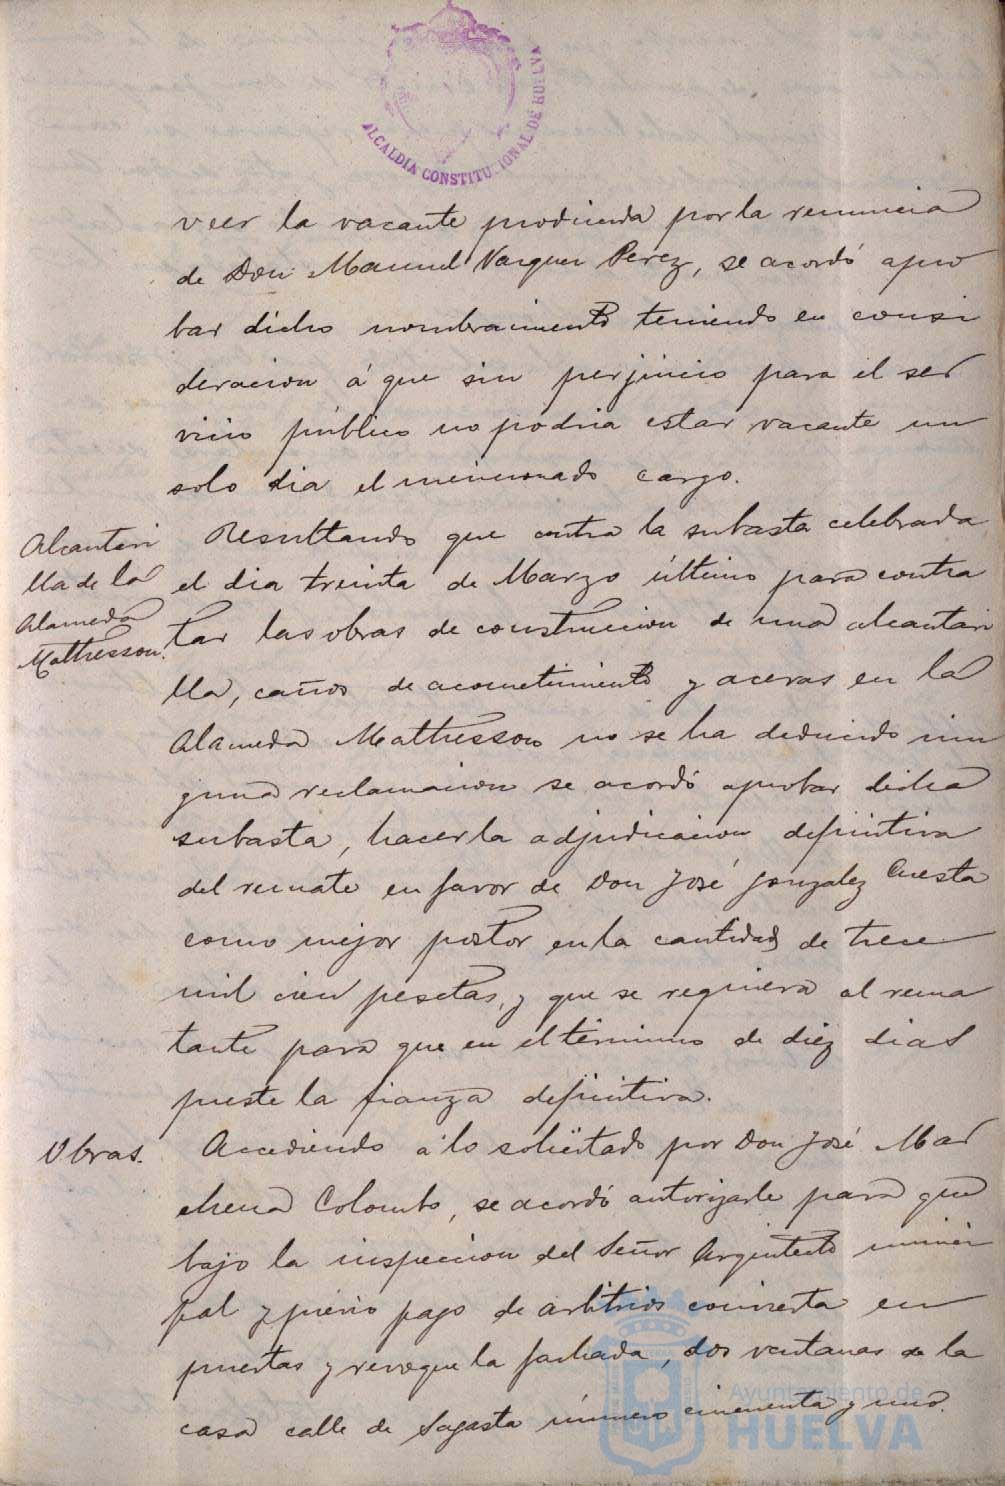 ALCALDIA CONSTITUCIONAL DE HUELVA
veer la vacante producida por la renuncia
de Don Manuel Vazquez Perez, se acordó apro
bar dicho nombramiento teniendo en consi
deracion á que sin perjuicio para el ser
vicio público no podria estar vacante un
solo dia el mencionado cargo.
Alcantari
lla de la
Alameda
Mathesson.
Resultando que contra la subasta celebrada
el dia treinta de Marzo último para contra
tar las obras de construccion de una alcantari
lla, caños de acometimiento y aceras en la
Alameda Mathesson no se ha deducido nin
guna reclamacion se acordó aprobar dicha
subasta, hacer la adjudicacion definitiva
del remate en favor de Don José Gonzalez Cuesta
como mejor postor en la cantidad de trece
mil cien pesetas, y que se requiera al rema
tante para que en el término de diez dias
preste la fianza definitiva.
Obras.
Accediendo á lo solicitado por Don José Mar
chena Colombo, se acordó autorizarle para que
bajo la inspeccion del Señor Arquitecto munici
pal y prévio pago de arbitrios convierta en
puertas y revoque la fachada, dos ventanas de la
casa calle de Sagasta número cincuenta y uno.
Ayuntamiento de
HUELVA